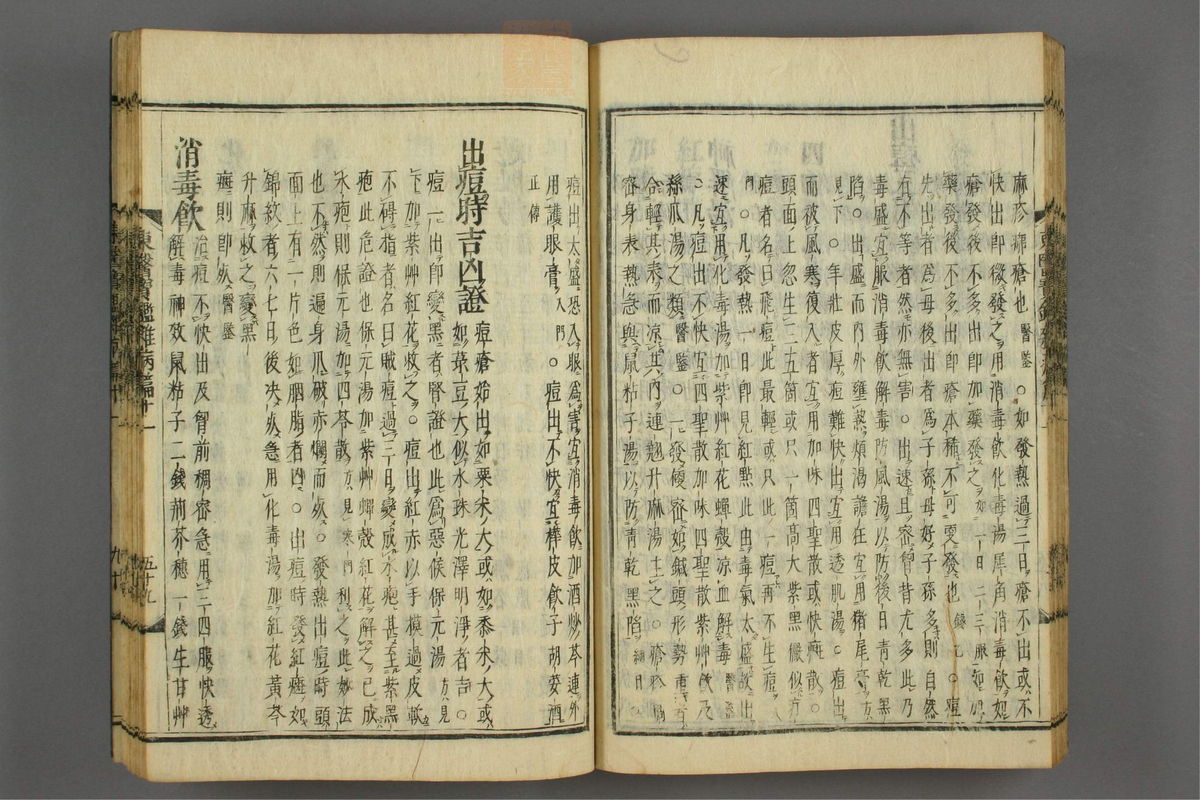 麻疹癍瘡也醫鑒○如發熱過三日瘡不出或不
快出即微發之用消毒飮化毒湯犀角消毒飮如
瘡發後不多出即加藥發之如一日二三服如加
藥發後不多出即瘡本稀不可更發也錢乙○痘
先出者爲母後出者爲子磊母好子孫多則自然
有不等者然亦無害○出速且密胷背尤多此乃
毒盛宜服消毒飮解毒防風湯以防後日靑乾黑
陷○出盛而内外壅熱煩渴譫狂宜用猪尾膏方
見下○年壯皮厚痘難快出宜用透肌湯○痘出
而被風寒復入者宜用加味四聖散或快癍散○
頭面上忽生三五箇或只一箇高大紫黑儼似方
痘者名曰飛痘此最輕或只此一痘再不生痘入
門○凡發熱一日即見紅點此由毒氣太盛故出
速宜用化毒湯加紫艸紅花蟬殼凉血解毒醫鑒
○凡痘出不快宜四聖散加味四聖散紫艸飮及
絲瓜湯之類醫鑒○一發便密如鍼頭形勢重者
合輕其表而凉其内連翹升麻湯主之○瘡疹
齊身表熱急與鼠粘子湯以防靑乾黑陷
痘出太盛恐入眼爲害宜消毒飮加酒炒芩連外
用護眼膏入門○痘出不快宜㯶皮飮子胡荽酒
正傳
出痘時吉凶證
痘瘡始出如粟米大或如黍米大或
如菉豆大似水珠光澤明淨者吉○
痘一出即變黑者腎證也此爲惡候保元湯方見
下加紫艸紅花救之○痘出紅赤以手摸過皮軟
不碍指者名曰賊痘過三日變成水疱甚至紫黑
疱此危證也保元湯加紫艸蟬殼紅花解之已成
水疱則保元湯加四苓散方見寒門利之此妙法
也不然則遍身爪破赤爛而死○發熱出痘時頭
面上有一片色如胭脂者凶○出痘時發紅癍如
錦紋者六七日後决死急用化毒湯加紅花黃芩
升麻救之變黑
癍則即死醫鑒
消毒飮
治痘不快出及胷前稠密急用三四服快透
解毒神效鼠粘子二錢荊芥穗一錢生甘艸
東醫寶鑑雜病篇十一
五十九